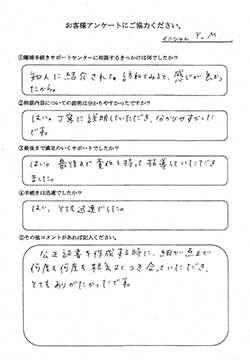 お客様アンケートにご協力ください。
イニシャル Y.M
①離婚手続きサポートセンターに相談するきっかけは何でしたか？
知人に紹介されて。訪ねてみると、感じが良かっ
たから。
②相談内容についての説明は分かりやすかったですか？
はい。丁寧に説明していただき、分かりやすかった
です。
③最後まで満足のいくサポートでしたか？
はい。最後まで責任を持って指導していただき
ました。
④手続きは迅速でしたか？
はい、とても迅速でした。
⑤その他コメントがあれば記入ください。
公正証書を作成する時に、細かい点まで
何度も何度も根気よくつき合っていただき、
とてもありがたかったです。